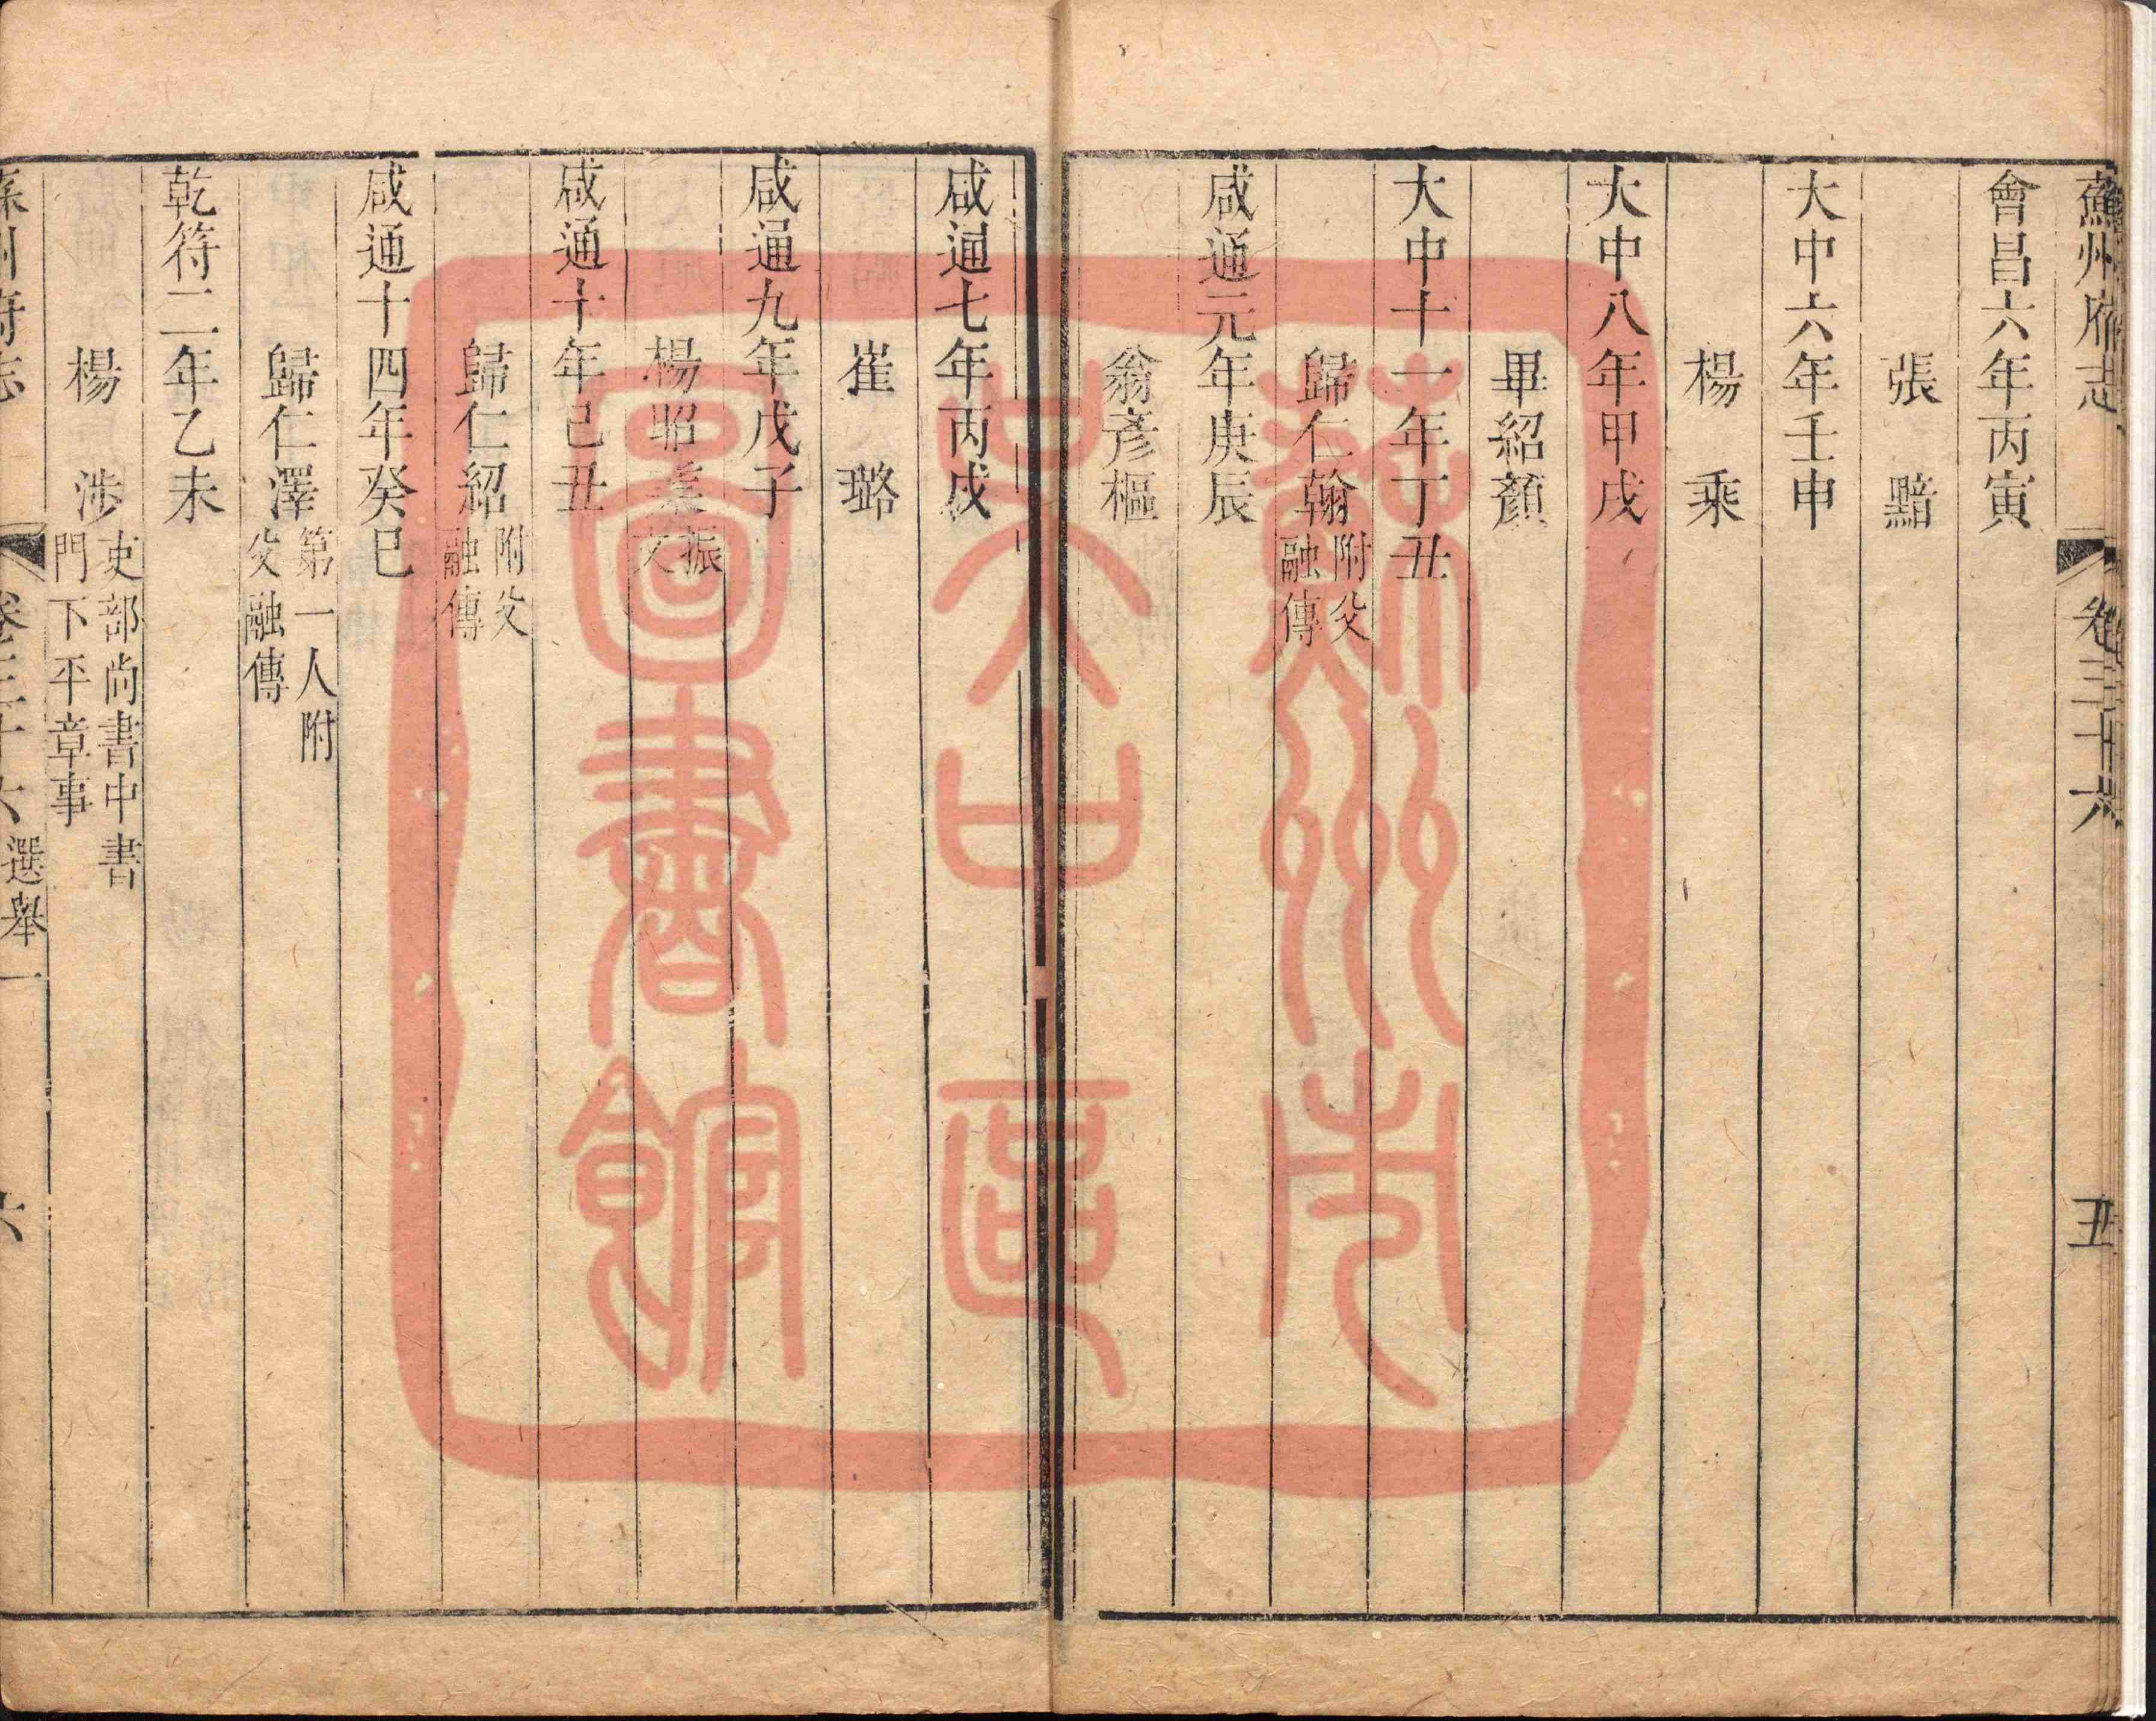 蘇州府志 卷三十六 五
會昌六年丙寅
張 黯
大中六年壬申
楊 乘
大中八年甲戌
畢紹顏
大中十一年丁丑
歸仁翰 附父
融傳
咸通元年庚辰
翁彥樞
咸通七年丙戌
崔 璐
咸通九年戊子
楊昭業 振
文
咸通十年己丑
歸仁紹 附父
融傳
咸通十四年癸巳
歸仁澤 第一人附
父融傳
乾符二年乙未
楊 涉 吏部尚書中書
門下平章事
蘇州府志 卷三十六 選舉一 六
蘇州市
吳中區
圖書館